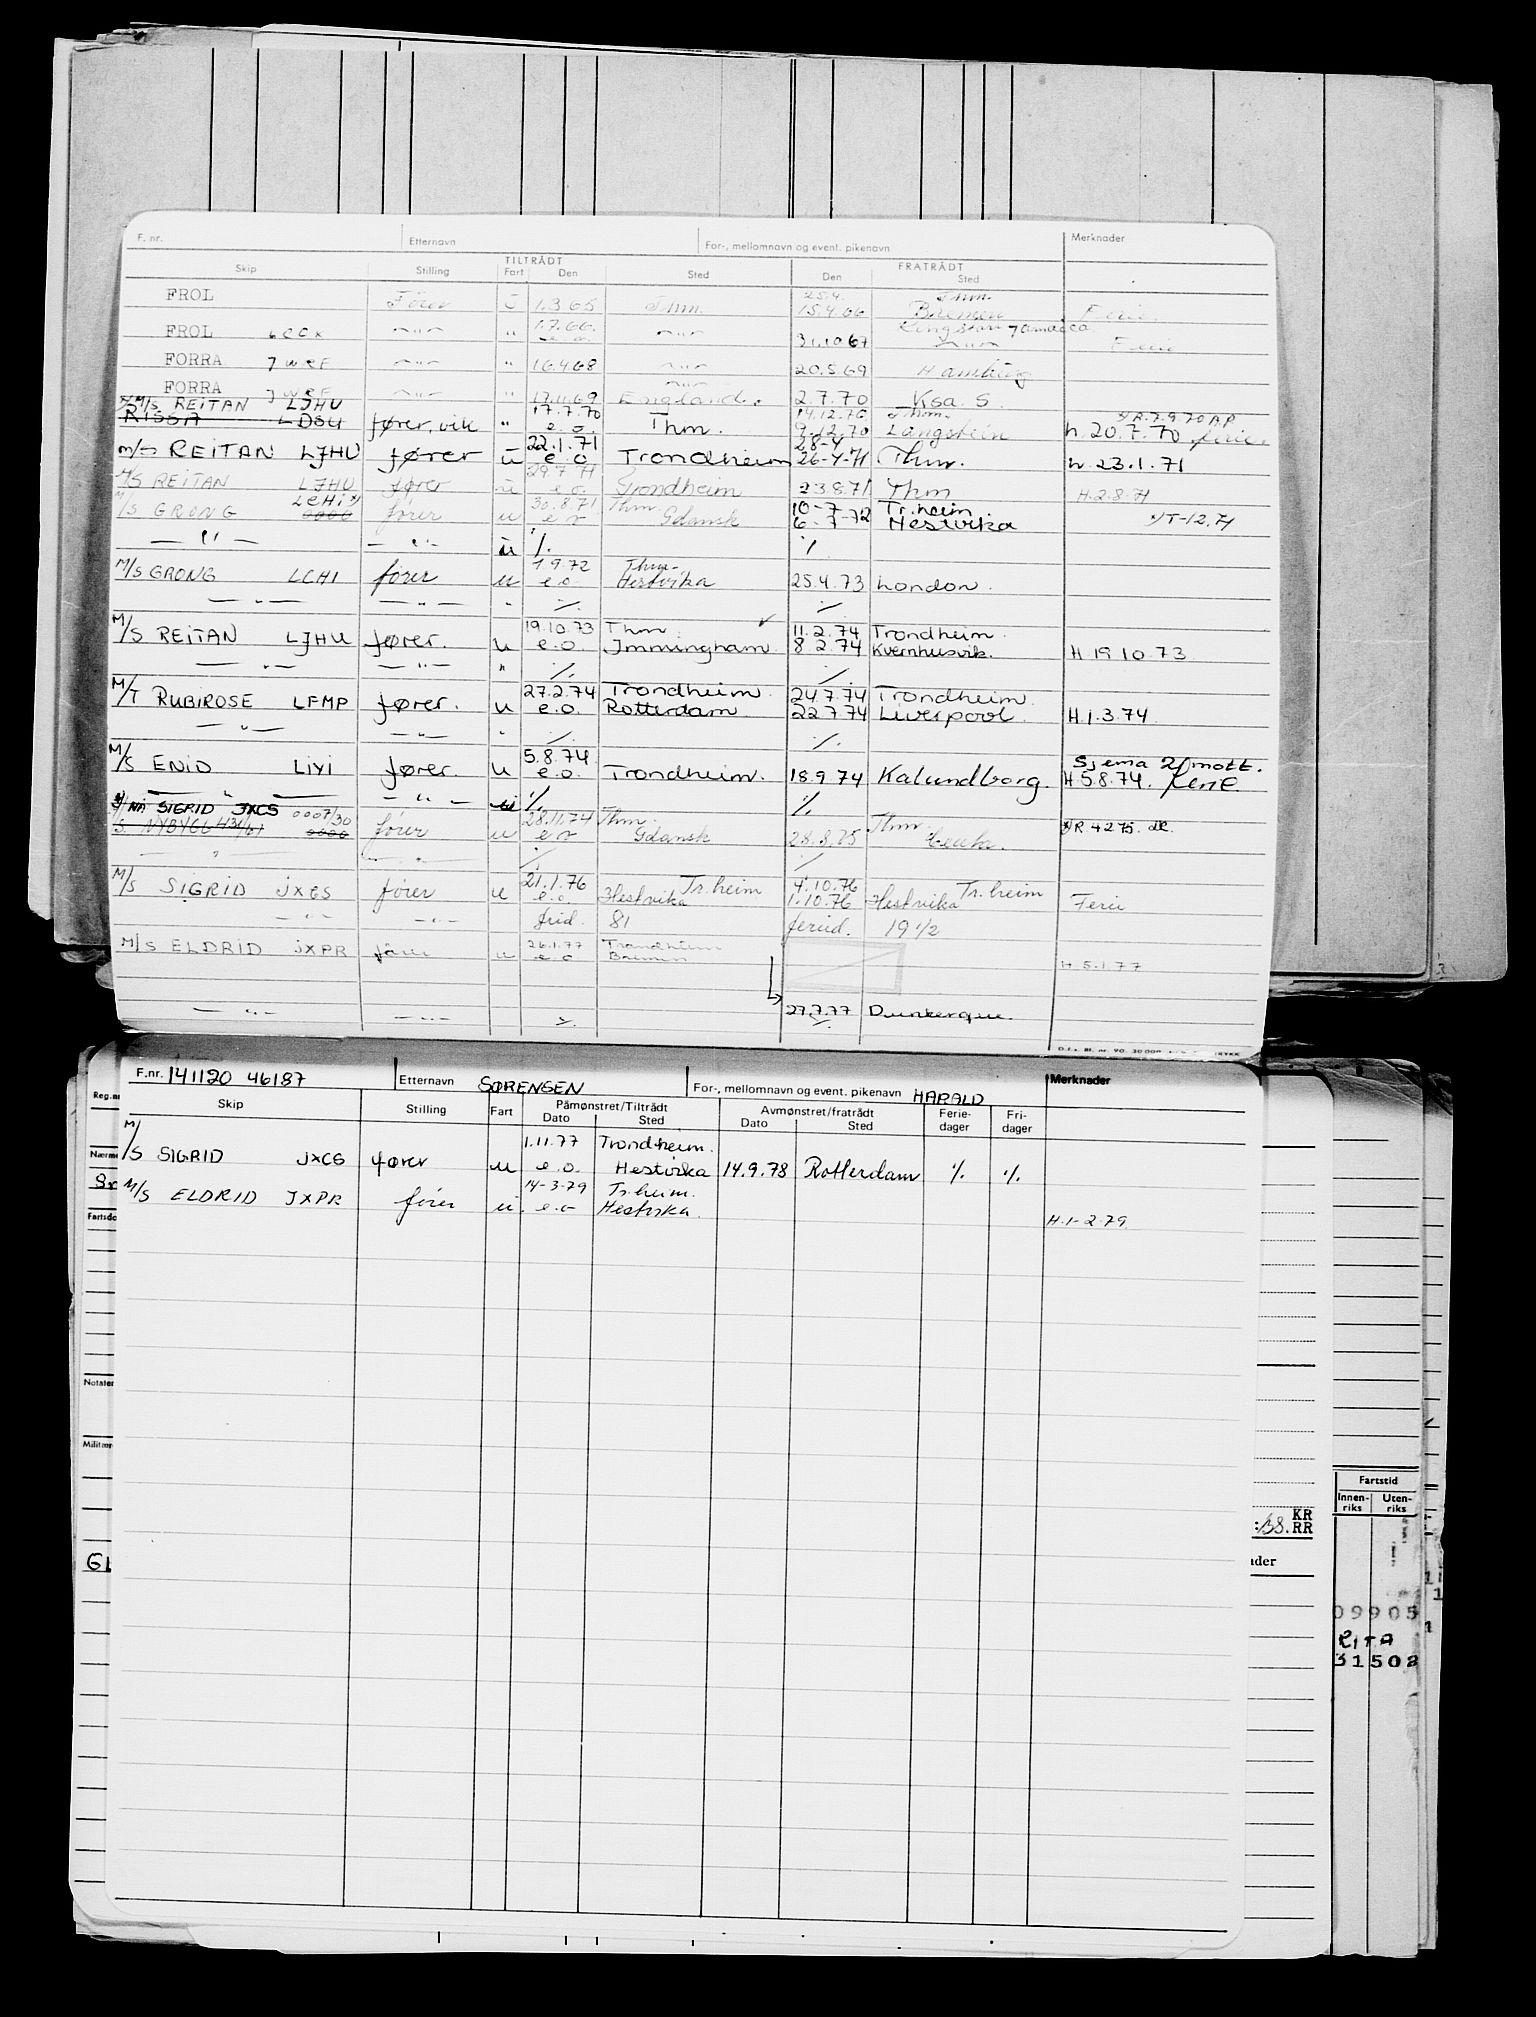 F. nr. Etternavn For-, mellomnavn og event. pikenavn Merknader
TILTRÅDT FRATRÅDT
Skip Stilling Fart Den Sted Den Sted
25.4. Thm.
FROL Fører U 1.3 65 Thm. 15.4.66 Bremen Ferie.
1.7.66. Kingston Jamaica
FROL LCCX —"— " e.o. —"— 31.10 67 —"— Ferie
FORRA JWRF —"— " 16.4.68 —"— 20.5 69 Hamburg
FORRA JWRF —"— " 17.11.69 England. 2.7.70 Ksa. S
M/S REITAN LJHU 17.7.70 14.12.70 Thm. x) R.7.9 70 AP
RISSA LDSU fører, vik " e.o. Thm. 9.12.70 Langstein h. 20.7.70 ferie.
22.1.71 28-4
m/s REITAN LJHU fører u e o Trondheim 26-4-71 Thm. h. 23.1.71
29.7 71
M/S REITAN LJHU fører u e.o. Trondheim 23.8.71 Thm H.2.8.71
LCHI x) 30.8.71 Thm. 10-7- Tr.heim
M/S GRONG 0000 fører u e o Gdansk 6-7-72 Hestvika x) T-12.71
— " — — " — u ./. ./.
1 9.72 Thm-
M/S GRONG LCHI fører u e.o. Hestvika 25.4.73 London.
— " — — " — " ./. ./.
19.10.73 Thm. 11.2.74 Trondheim.
M/S REITAN LJHU fører. u e.o. Immingham. 8 2.74 Kvernhusvik. H 19 10.73
— " — — " — " ./. ./.
27.2.74 Trondheim. 24.7.74 Trondheim.
M/T RUBIROSE LFMP fører. u e.o. Rotterdam. 22.7.74 Liverpool. H.1.3.74.
— " — — " — " ./. ./.
5.8.74. Sjema 2/mott.
M/S ENID LIYI fører. u e.o. Trondheim. 18.9 74 Kalundborg. H 5.8.74. ferie
— " — — " — ./. ./.
x) Nå SIGRID JXCS 0007/30 28.11.74 Thm. Thm.
S. NYBYGG 0000 fører u e o Gdansk 28.8.75 x) R 4 2 75.
" — " — ./. ./.
21.1.76 Tr.heim 4.10.76 Tr.heim
M/S SIGRID JXCS fører u e.o. Hestvika 1.10.76 Hestvika Ferie
— " — — " — frid. 81 feried. 19 1/2
26.1.77 Trondheim
M/S ELDRID JXPR fører u e o Bremen H 5.1.77
27.7.77 Dunkerque.
— " — — " — ./. ./.
F.nr. 141120 46187 Etternavn SØRENSEN For-, mellomnavn og event. pikenavn HARALD Merknader
Skip Stilling Fart Påmønstret/Tiltrådt Avmønstret/fratrådt Ferie- Fri-
Dato Sted Dato Sted dager dager
1.11.77 Trondheim.
M/S SIGRID JXCS fører u e.o. Hestvika 14.9.78 Rotterdam ./. ./.
14-3-79 Tr.heim.
M/S ELDRID JXPR fører u. e.o Hestvika. H.1-2.79.
Reg.nr
Nærme
Fartsdo
Notater
Militær
Fartstid
Innen- Uten-
riks riks
KR
RR
09905
RITA
31502